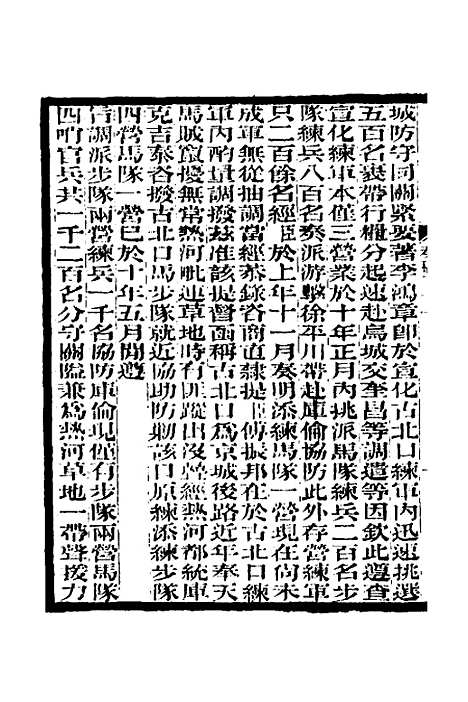 城防守同關緊要著李鴻章卽於宣化古北口練軍內迅速挑選
五百名裹帶行糧分起速赴烏城交奎昌等調遣等因欽此遵查
宣化練軍本僅三營業於十年正月內挑派馬隊練兵二百名步
隊練兵八百名奏派游擊徐平川帶赴庫倫協防此外存營練軍
只二百餘名經臣於上年十一月奏明添練馬隊一營現在尚未
成軍無從抽調當經恭錄咨商直隸提督傅振邦在於古北口練
軍內酌量調撥茲准該提督函稱古北口為京城後路近年奉天
馬賊竄擾無常熱河毗連草地時有匪蹤出沒曾經熱河都統庫
克吉泰咨撥古北口馬步隊就近協助防勦該口原練添練步隊
四營馬隊一營已於十年五月間遵
旨調派步隊兩營練兵一千名協防庫倫現僅有步隊兩營馬隊
四哨官兵共一千二百名分守關隘兼為熱河草地一帶聲援力